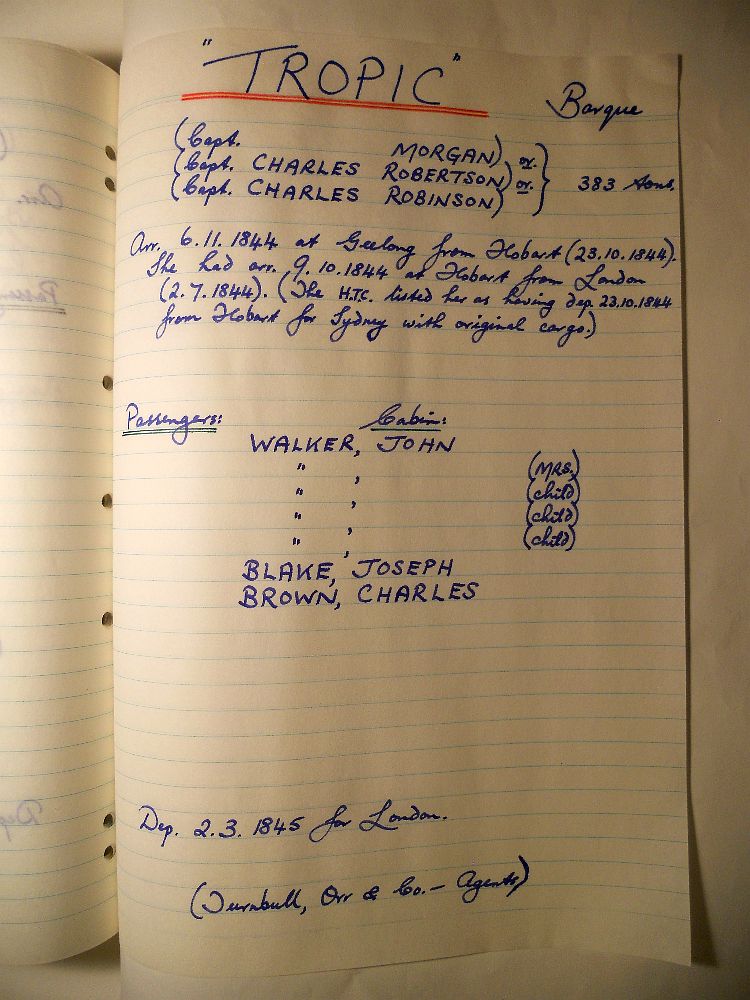 "TROPIC"
Barque
(Capt. MORGAN) or.
(Capt. CHARLES ROBERTSON) or.
(Capt. CHARLES ROBINSON)
383 tons.
Arr. 6.11.1844 at Geelong from Hobart (23.10.1844).
She had arr. 9.10.1844 at Hobart from London
(2.7.1844). (The H.T.C. listed her as having dep. 23.10.1844
from Hobart for Sydney with original cargo.)
Passengers: Cabin:
WALKER, JOHN
" , (MRS.)
" , (child)
" , (child)
" , (child)
BLAKE, JOSEPH
BROWN, CHARLES
Dep. 2.3.1845 for London.
(Turnbull, Orr & Co. - Agents)